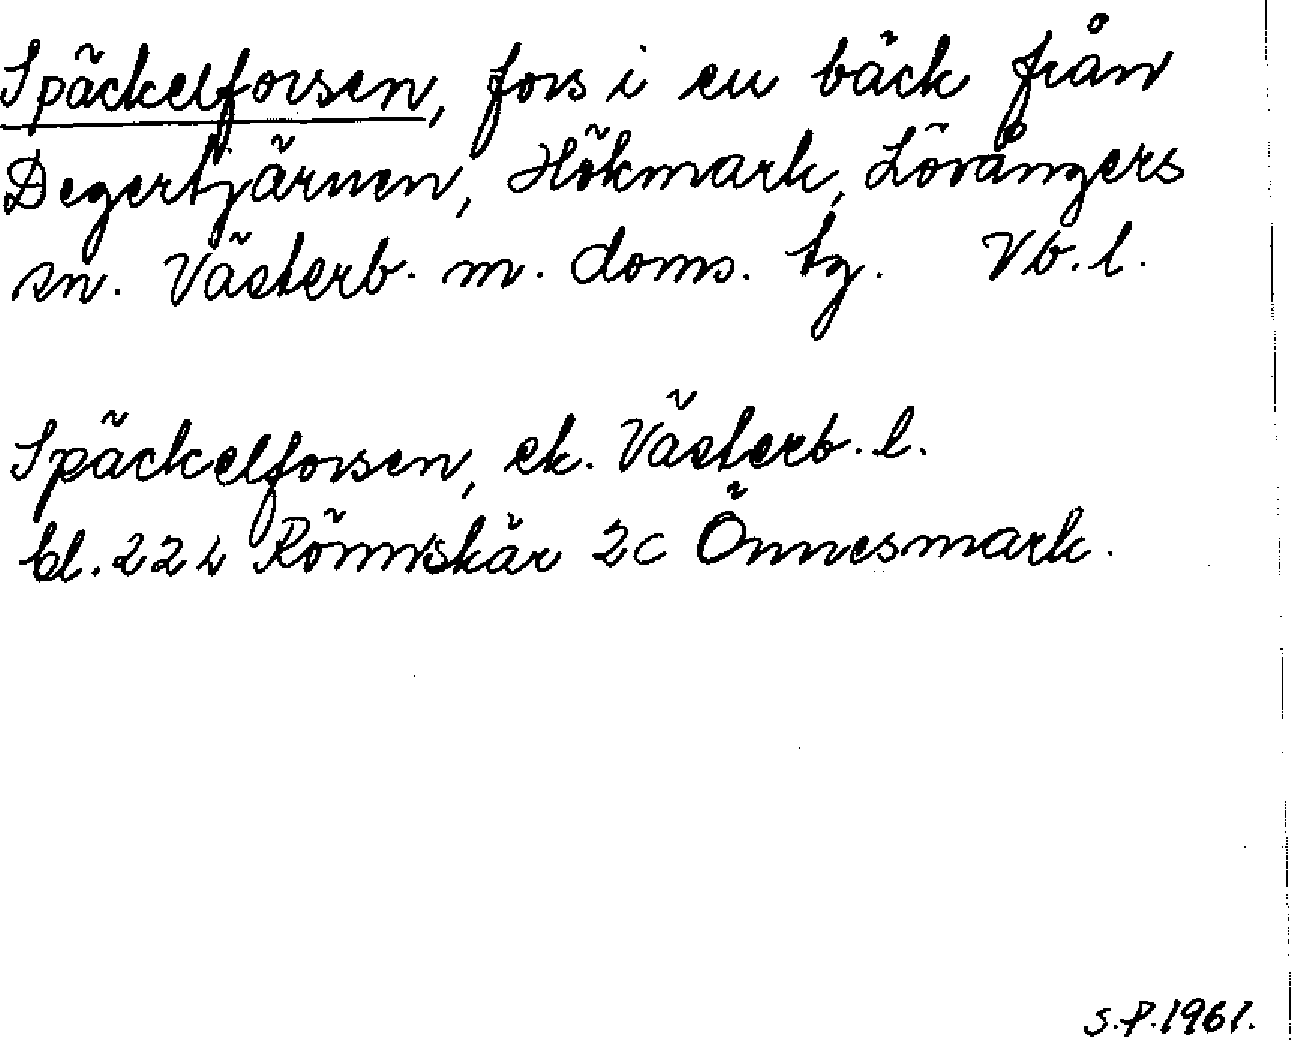 Späckelforsen, fors i en bäck från
Degertjärnen, Hökmark, Lövångers
sn. Västerb. m. doms. tg. Vb. l.
Späckelforsen, ek. Västerb. l.
bl. 22 L Rönnskär 2C Önnesmark.
S.P. 1961.